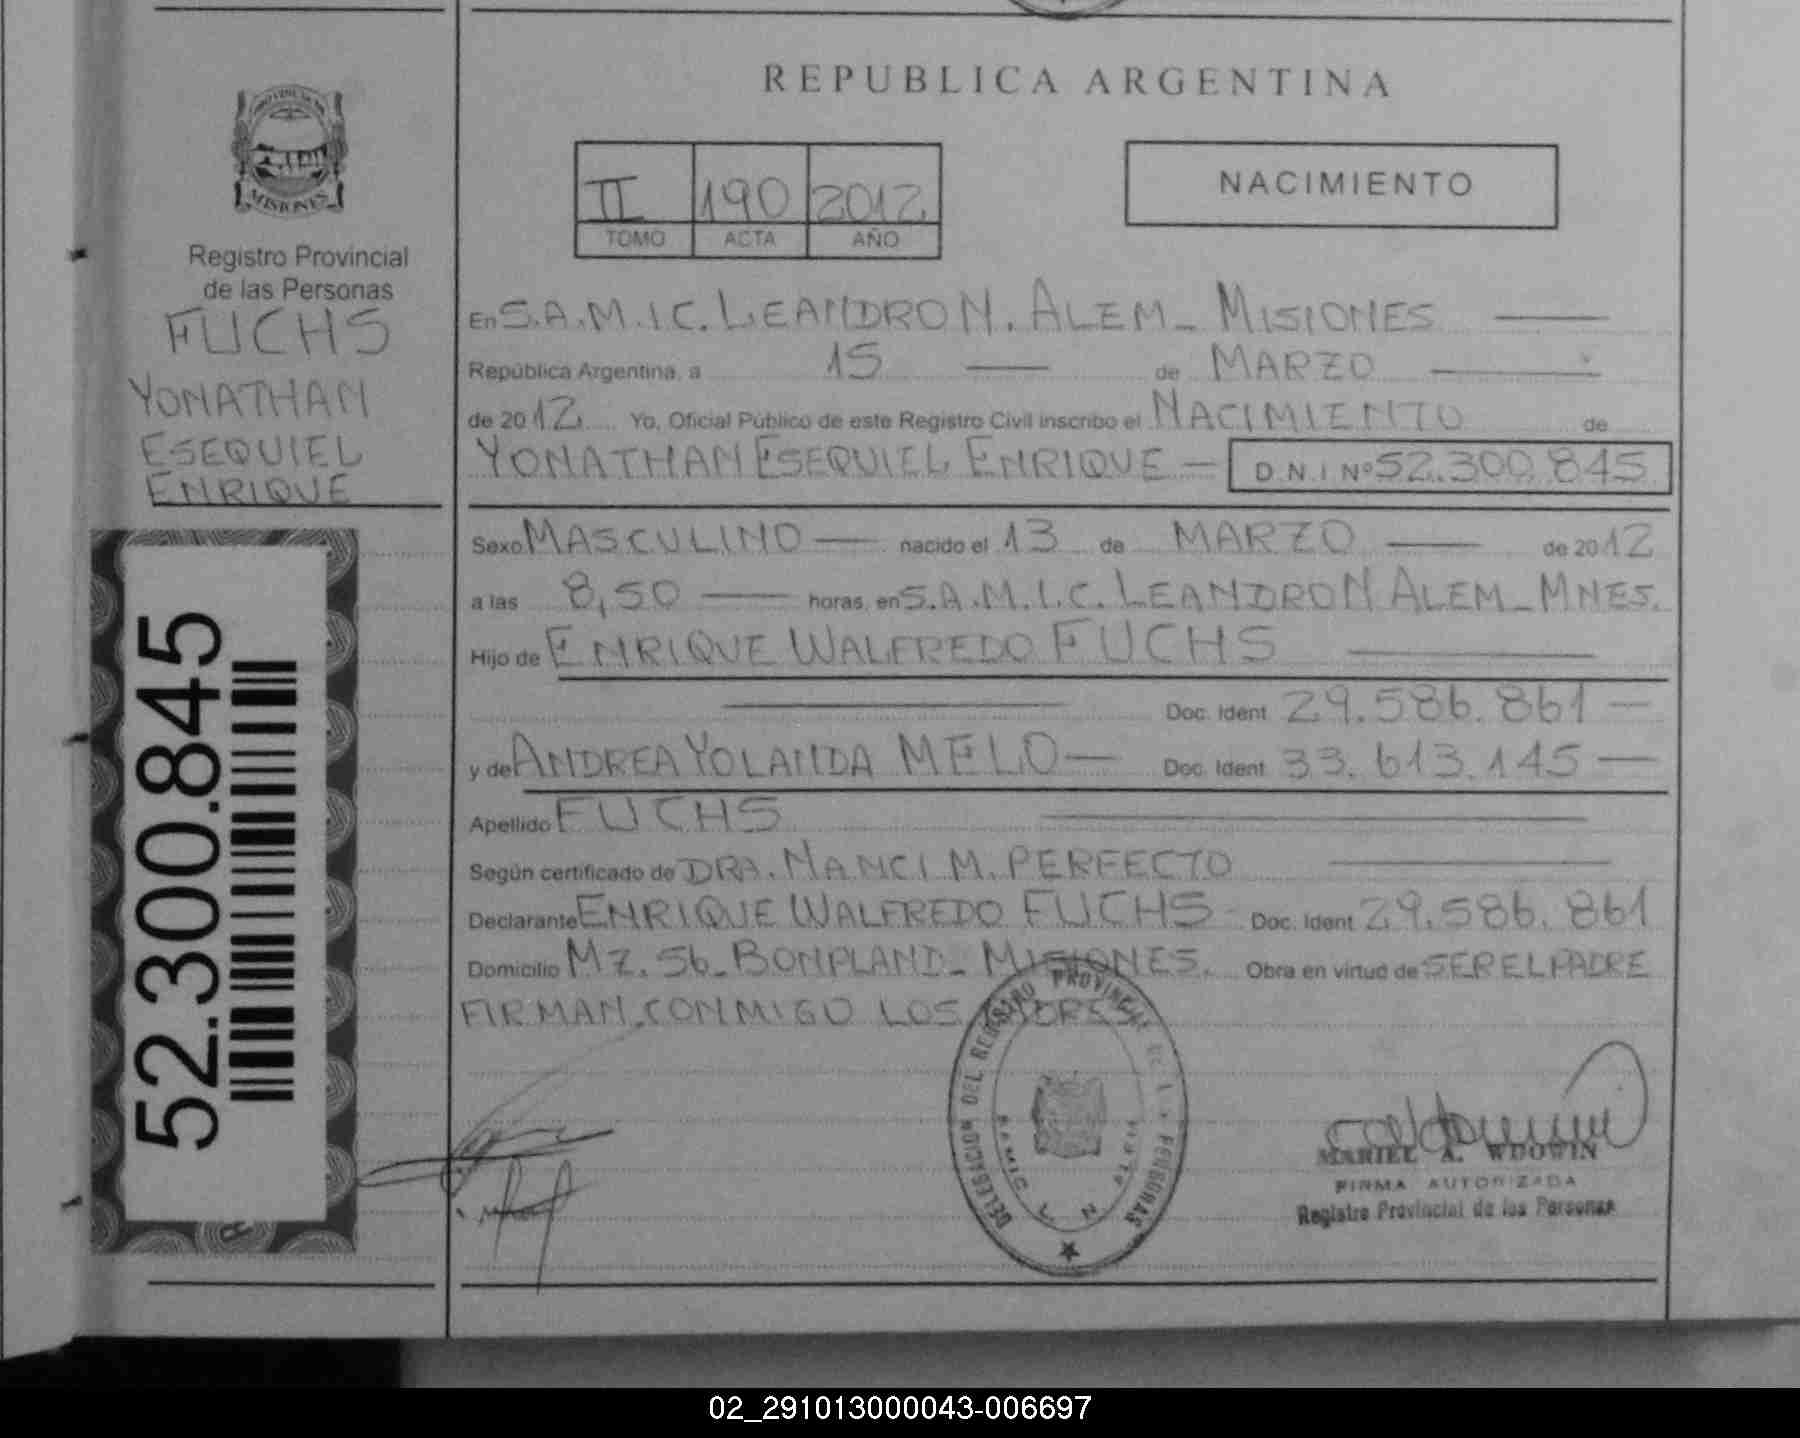 REPUBLICA ARGENTINA
PROVINCIA DE
MISIONES
Registro Provincial
de las Personas
FUCHS
YONATHAN
ESEQUIEL
ENRIQUE
52.300.845
II 190 2012
TOMO ACTA AÑO
NACIMIENTO
En S.A.M.I.C. LEANDRO N. ALEM - MISIONES
República Argentina, a 15 de MARZO
de 2012 Yo, Oficial Público de este Registro Civil inscribo el NACIMIENTO de
YONATHAN ESEQUIEL ENRIQUE — D.N.I Nº 52.300.845
Sexo MASCULINO — nacido el 13 de MARZO — de 2012
a las 8,50 — horas, en S.A.M.I.C. LEANDRO N ALEM - MNES.
Hijo de ENRIQUE WALFREDO FUCHS
Doc. Ident 29.586.861 —
y de ANDREA YOLANDA MELO — Doc. Ident 33.613.145 —
Apellido FUCHS
Según certificado de DRA. NANCI M. PERFECTO
Declarante ENRIQUE WALFREDO FUCHS - Doc. Ident 29.586.861
Domicilio MZ. 56 - BONPLAND - MISIONES. Obra en virtud de SER EL PADRE
FIRMAN CONMIGO LOS PADRES
DELEGACION DEL REGISTRO PROVINCIAL DE L PERSONAS
MARIEL A. WDOWIN
FIRMA AUTORIZADA
Registro Provincial de las Personas
02_291013000043-006697